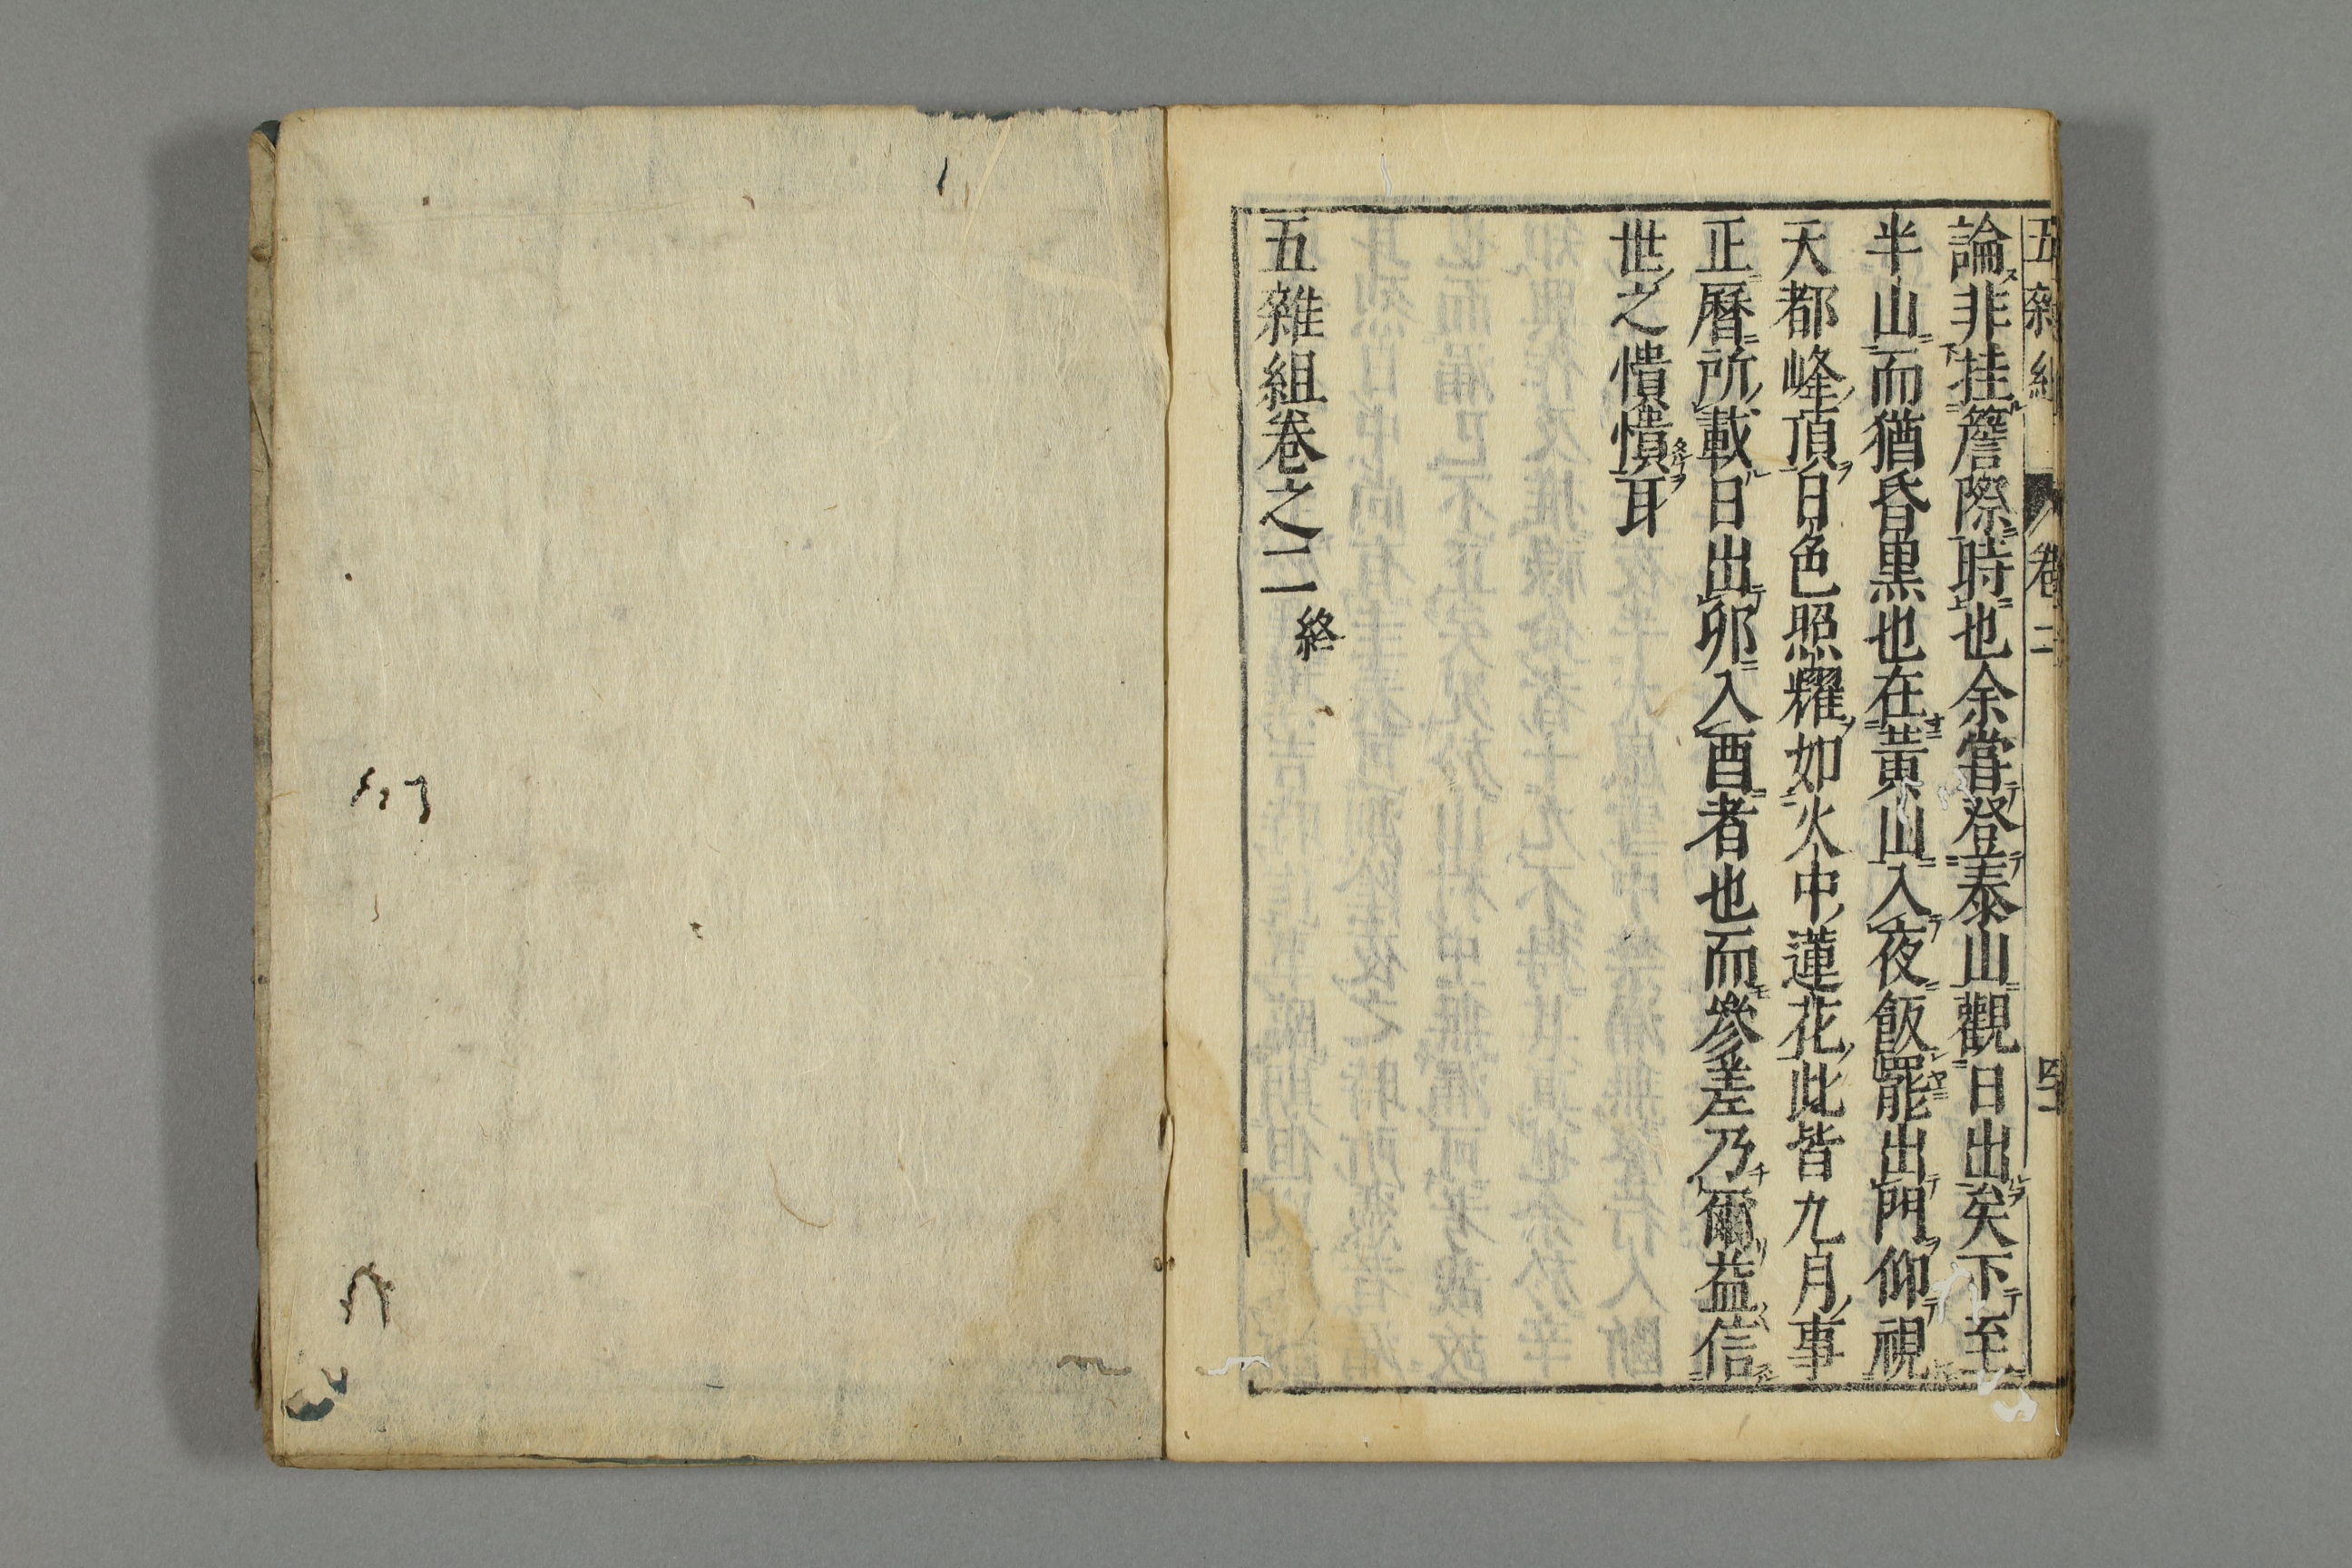 五雜組 卷二
論非挂簷際時也余嘗登泰山觀日出矣下至
半山而猶昏黒也在黄山入夜飯罷出門仰視
天都峰頂日色照耀如火中蓮花此皆九月事
正曆所載日出卯入酉者也而參差乃爾益信
世之憒憒耳
五雜組卷之二終